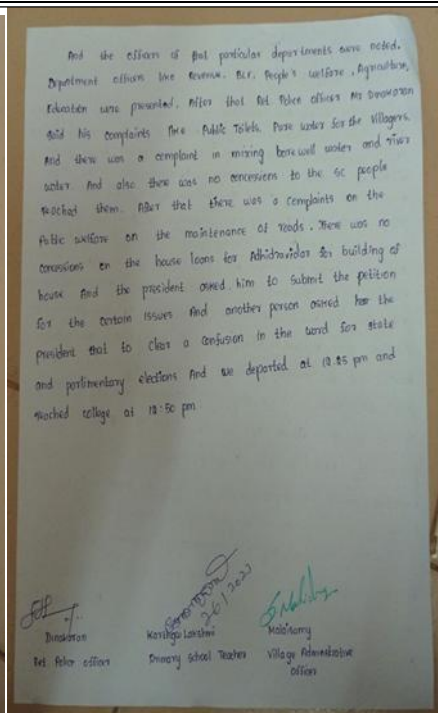 And the officers of that particular departments were noted.
Department officers like Revenue, BLF, People's welfare, Agriculture,
Education were presented. After that Ret Police officer Mr Dinakaran
said his complaints like Public Toilets, Pure water for the villagers.
And there was a complaint in mixing borewell water and river
water. And also there was no concessions to the SC people
reached them. After that there was a complaints on the
Public welfare on the maintenance of roads. There was no
concessions on the house loans for Adhidravidar for building of
house And the president asked him to submit the petition
for the certain issues And another person asked the
president that to clear a confusion in the word for state
and parlimentary elections And we departed at 12.25 pm and
reached college at 12:50 pm.
26/1/2023
Dinakaran
Ret Police officer
Karthiga Lakshmi
Primary School Teacher
Malaisamy
Village Administrative
Officer